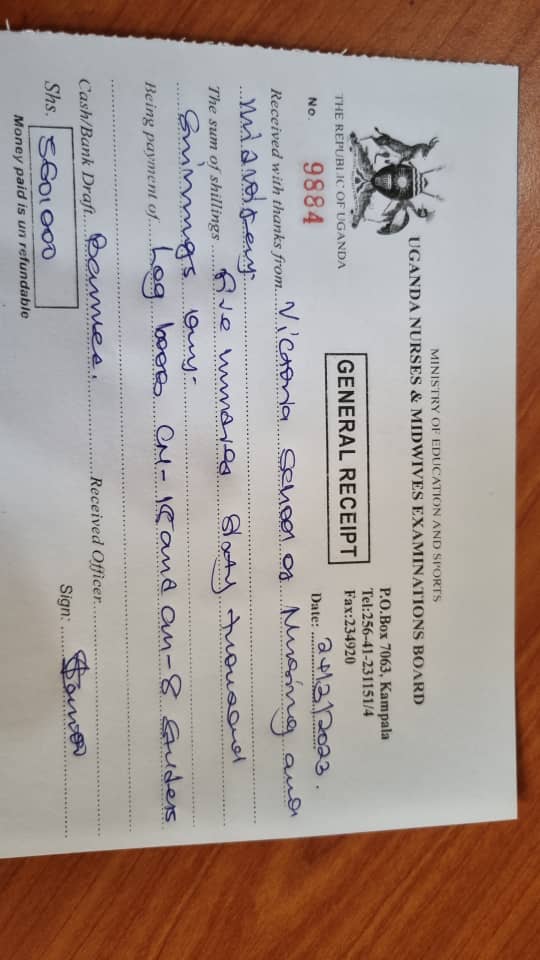 MINISTRY OF EDUCATION AND SPORTS
UGANDA NURSES & MIDWIVES EXAMINATIONS BOARD
P.O.Box 7063, Kampala
Tel:256-41-231151/4
Fax:234920
THE REPUBLIC OF UGANDA
GENERAL RECEIPT
No. 9884
Date: 24/2/2023.
Received with thanks from Victoria School of Nursing and
Midwifery.
The sum of shillings Five hundred Sixty thousand
Shillings only.
Being payment of Log books CN-18 and CM-8
Cash/Bank Draft Received Officer
Shs. 560,000
Sign:
Money paid is un refundable